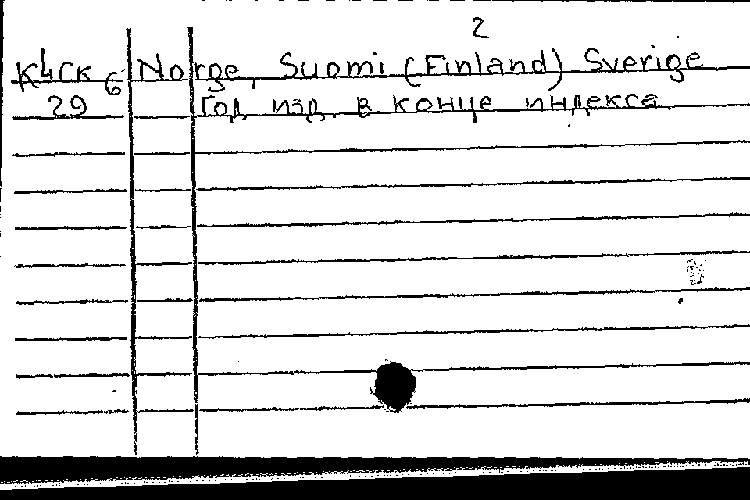 2
К4СК 6 Norge, Suomi (Finland) Sverige
29 Год изд. в конце индекса